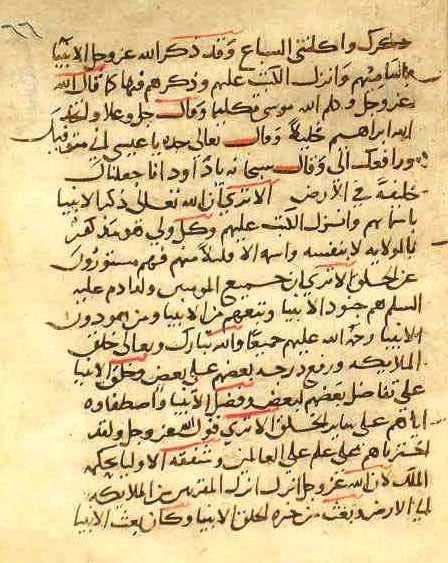 ذكرك واكلتني السباع وقد ذكر الله عز وجل الانبيا
باسمايهم وانزل الكتب عليهم وذكرهم فيها كما قال الله
عز وجل وكلم الله موسى تكليما وقال جل وعلا واتخذ
الله ابراهيم خليلا وقال تعالى جده يا عيسى اني متوفيك
ورافعك الي وقال سبحانه يا داود انا جعلناك
خليفة في الارض الا ترى ان الله تعالى ذكر الانبيا
باسمايهم وانزل الكتب عليهم وكل ولي فهو
بالولايه لا بنفسه واسمه الا قليلا منهم فهم مستورون
عن الخلق الا ترى ان جميع المومنين ولد ادم عليه
السلم هم جنود الانبيا وتبعهم من الانبيا ومن
الانبيا رحمة الله عليهم جميعا والله تبارك وتعالى خلق
الملايكه ورفع درجه بعضهم على بعض وخلق الانبيا
على تفاضل بعضهم لبعض وفضل الانبيا واصطفاوه
اياهم على ساير الخلق الا ترى قول الله عز وجل ولقد
اخترناهم على علم على العالمين الاوليا
الملك لان الله عز وجل انزل المقربين من الملايكه
الى الارض وبعث من خيره الخلق الانبيا وكان بعث الانبيا